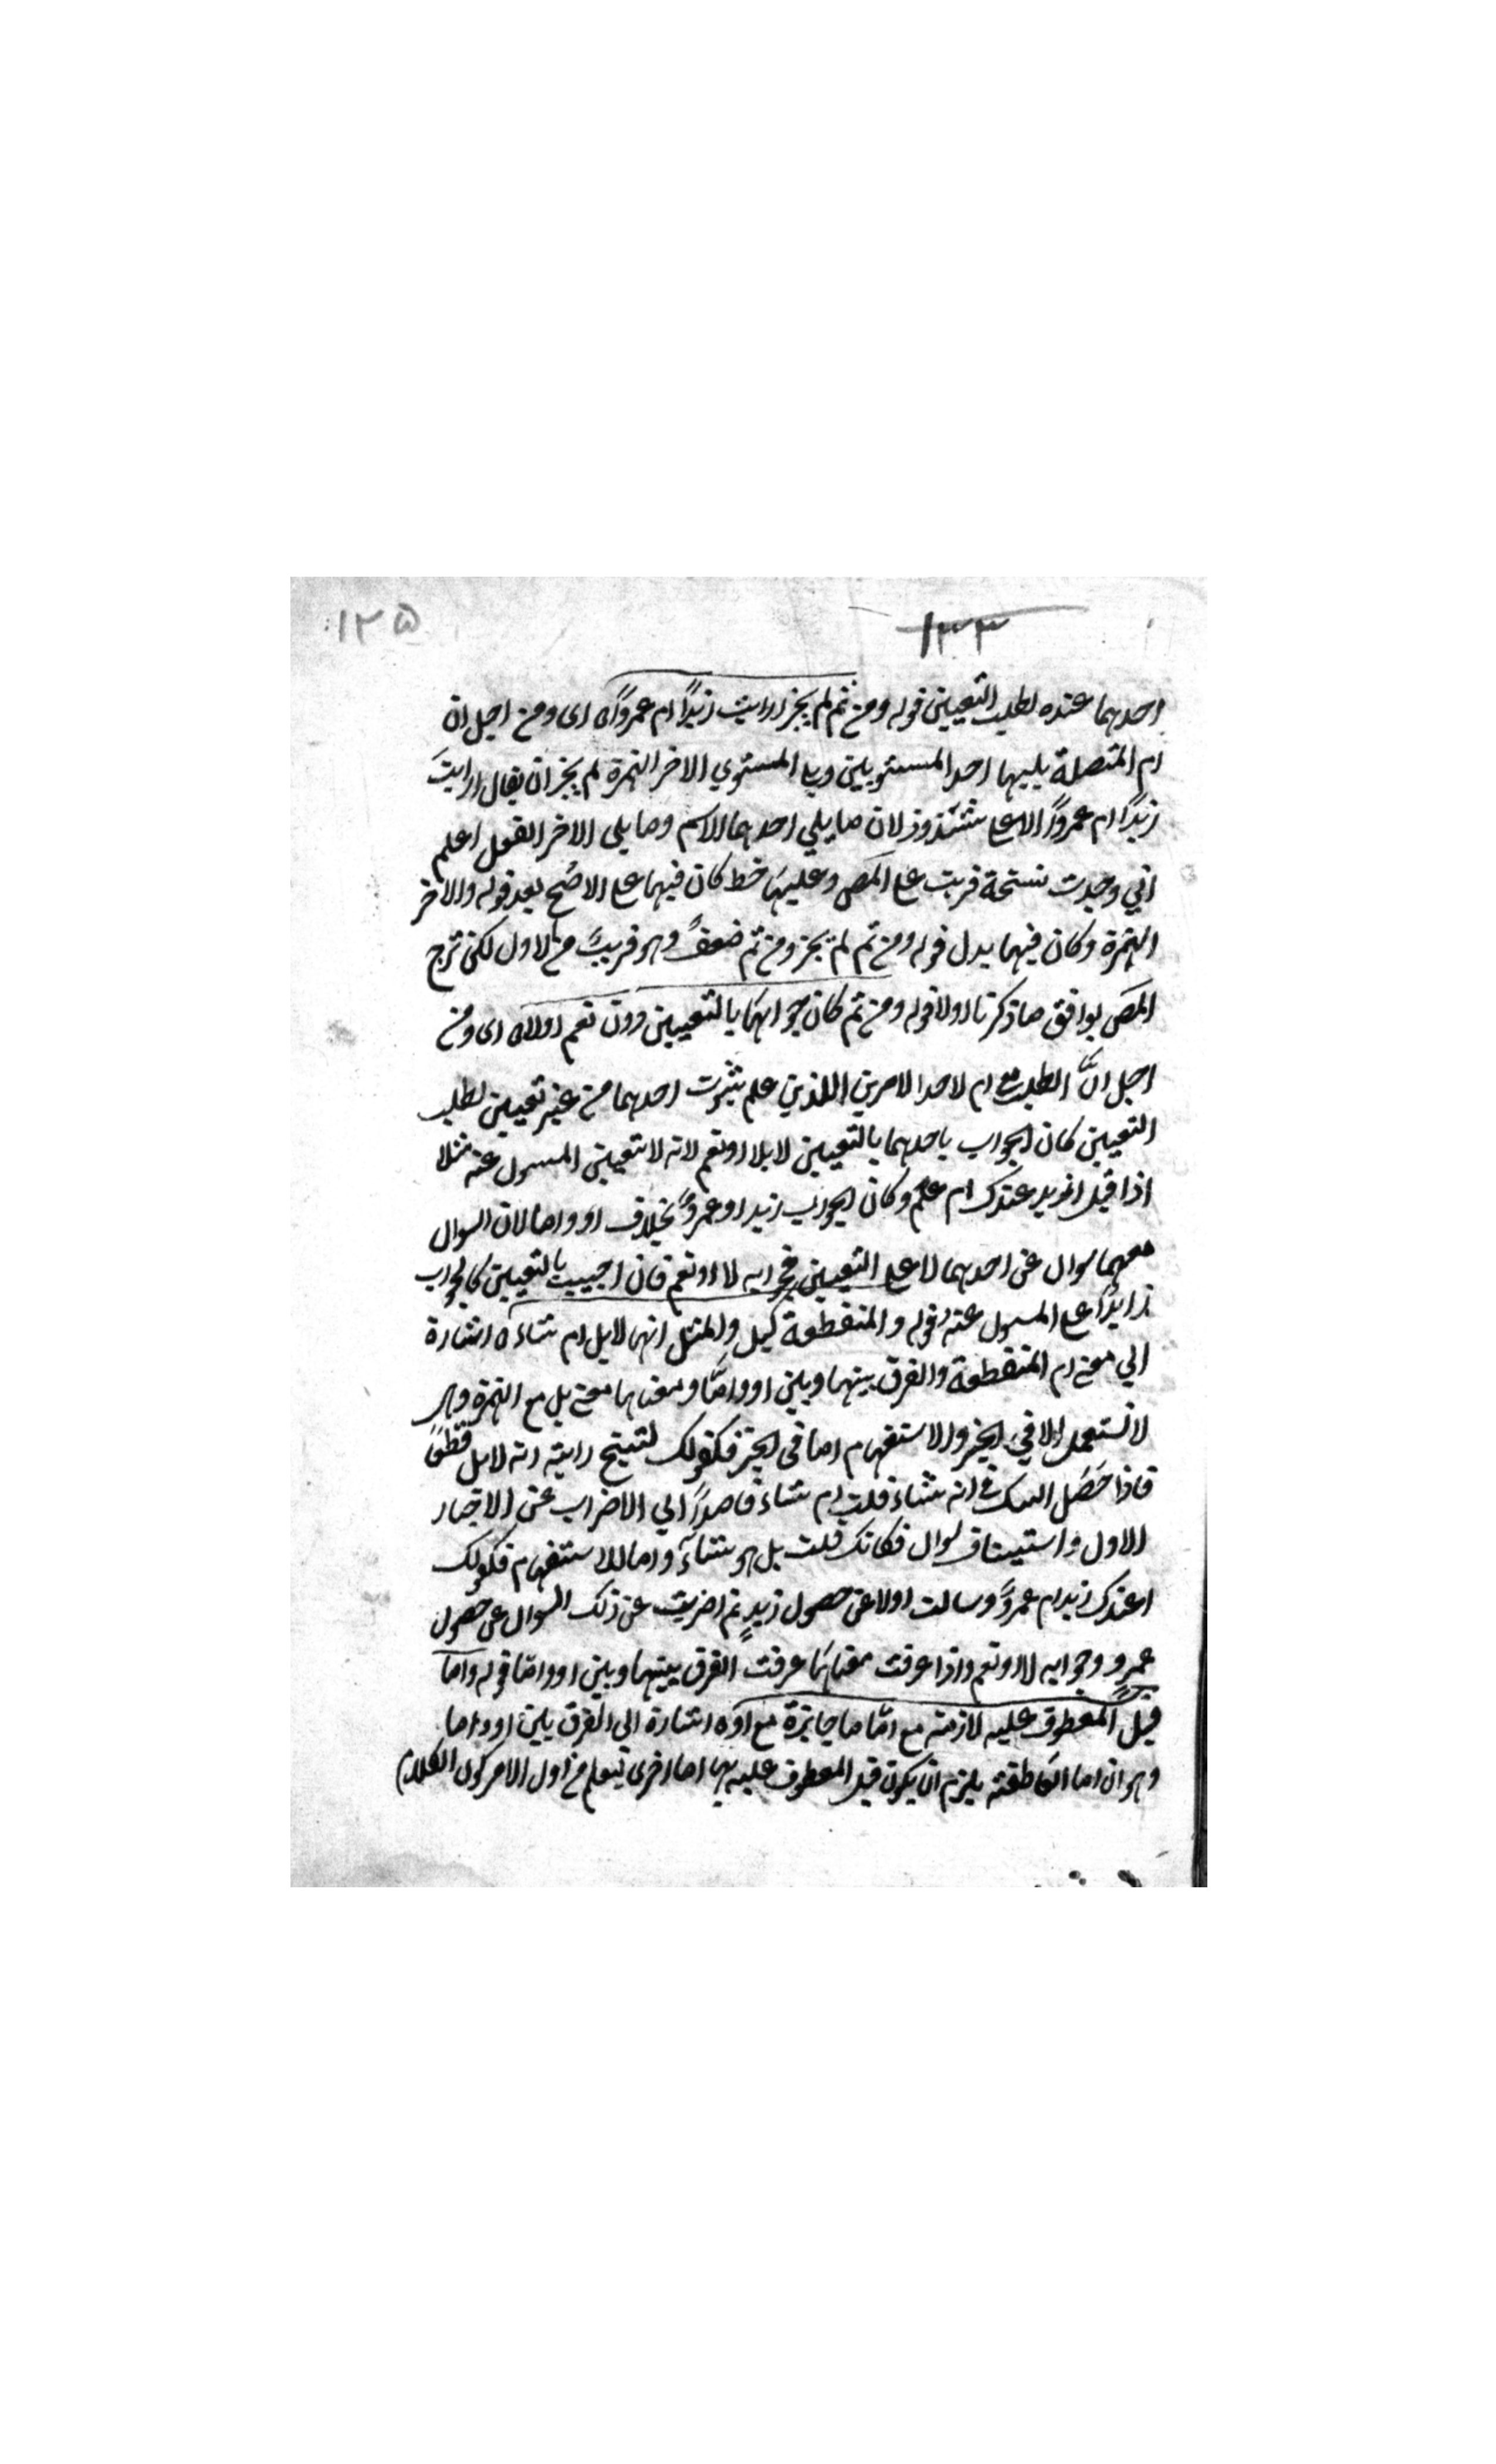 ١٣٣
١٢٥
احدهما عنده لطلب التعيين قوله ومن ثم لم يجز ارايت زيدًا ام عمروًا اى ومن اجل ان
ام المتصلة يليها احد المستويين ويلى المستوي الاخر الهمزة لم يجز ان يقال ارايتَ
زيدًا ام عمروًا الا على شذوذ لان ما يلي احدهما الاسم وما يلى الاخر الفعل اعلم
اني وجدت نسخة قريت على المص وعليها خط كان فيها على الاصح بعد قوله والاخر
الهمزة وكان فيها بدل قوله ومن ثم لم يجز ومن ثم ضعف وهو قريب من الاول لكن شرح
المص يوافق ما ذكرنا اولا قوله ومن ثم كان جوابها بالتعيين دون نعم اولا اى ومن
اجل انّ الطلب مع ام لاحد الامرين اللذين علم ثبوت احدهما من غير تعيين لطلب
التعيين كان الجواب باحدهما بالتعيين لا بلا او نعم لانه لا تعيين المسول عنه مثلا
اذا قيل ازيد عندك ام عمرو كان الجواب زيد او عمرو بخلاف او واما لان السوال
معهما سوال عن احدهما لا على التعيين فجوابه لا او نعم فان اجيبت بالتعيين كالجواب
زايدًا على المسول عنه قوله والمنقطعة كبل والمثل انها لابل ام شاء اشارة
الي معنى ام المنقطعة والفرق بينها وبين او وامّا ومعناها معنى بل مع الهمزة وهى
لا تستعمل الا في الخبر والاستفهام اما فى الخبر فكقولك لشبح رايته انه لابل قطعًا
فاذا حَصَل الشك في انه شاء قلت ام شاء قاصدًا الي الاضراب عن الاخبار
الاول واستيناف سوال فكانك قلت بل اهو شاء واما للاستفهام فكقولك
اعندك زيد ام عمرو وسالت اولا عن حصول زيدٍ ثم اضربت عن ذلك السوال عن حصول
عمرو وجوابه لا او نعم واذا عرفت معناها عرفت الفرق بينها وبين او وامّا قوله وامّا
قبل المعطوف عليه لازمة مع امّا ما جايزة مع او اشارة الى الفرق بين او واما
وهو ان اما العاطفة يلزم ان يكون قبل المعطوف عليه بها اما اخرى ليعلم من اول الامر كون الكلام